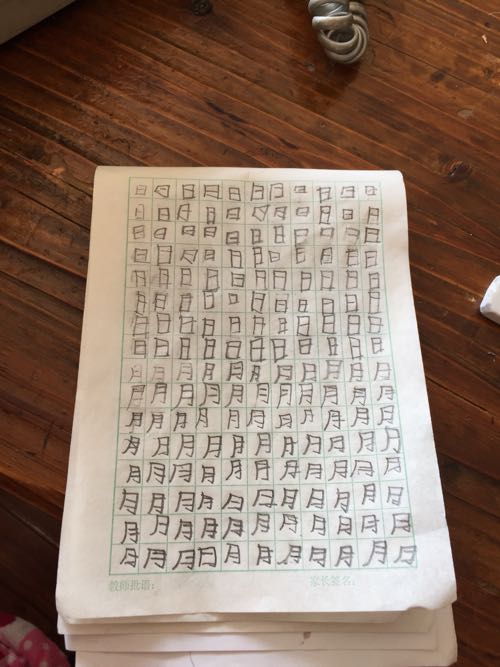 日日日日日日日日日日日
日日日日日日日日日日日
日日日日日日日日日日日
日日日日日日日日日日日
日日日日日日日日日日日
日日日日日日日日日日日
日日日日日日日日日日日
日日日日日日日日日日日
月月月月月月月月月月月
月月月月月月月月月月月
月月月月月月月月月月月
月月月月月月月月月月月
月月月月月月月月月月月
月月月月月月月月月月月
月月月月月月月月月月月
月月月月月月月月月月月
教师批语： 家长签名：